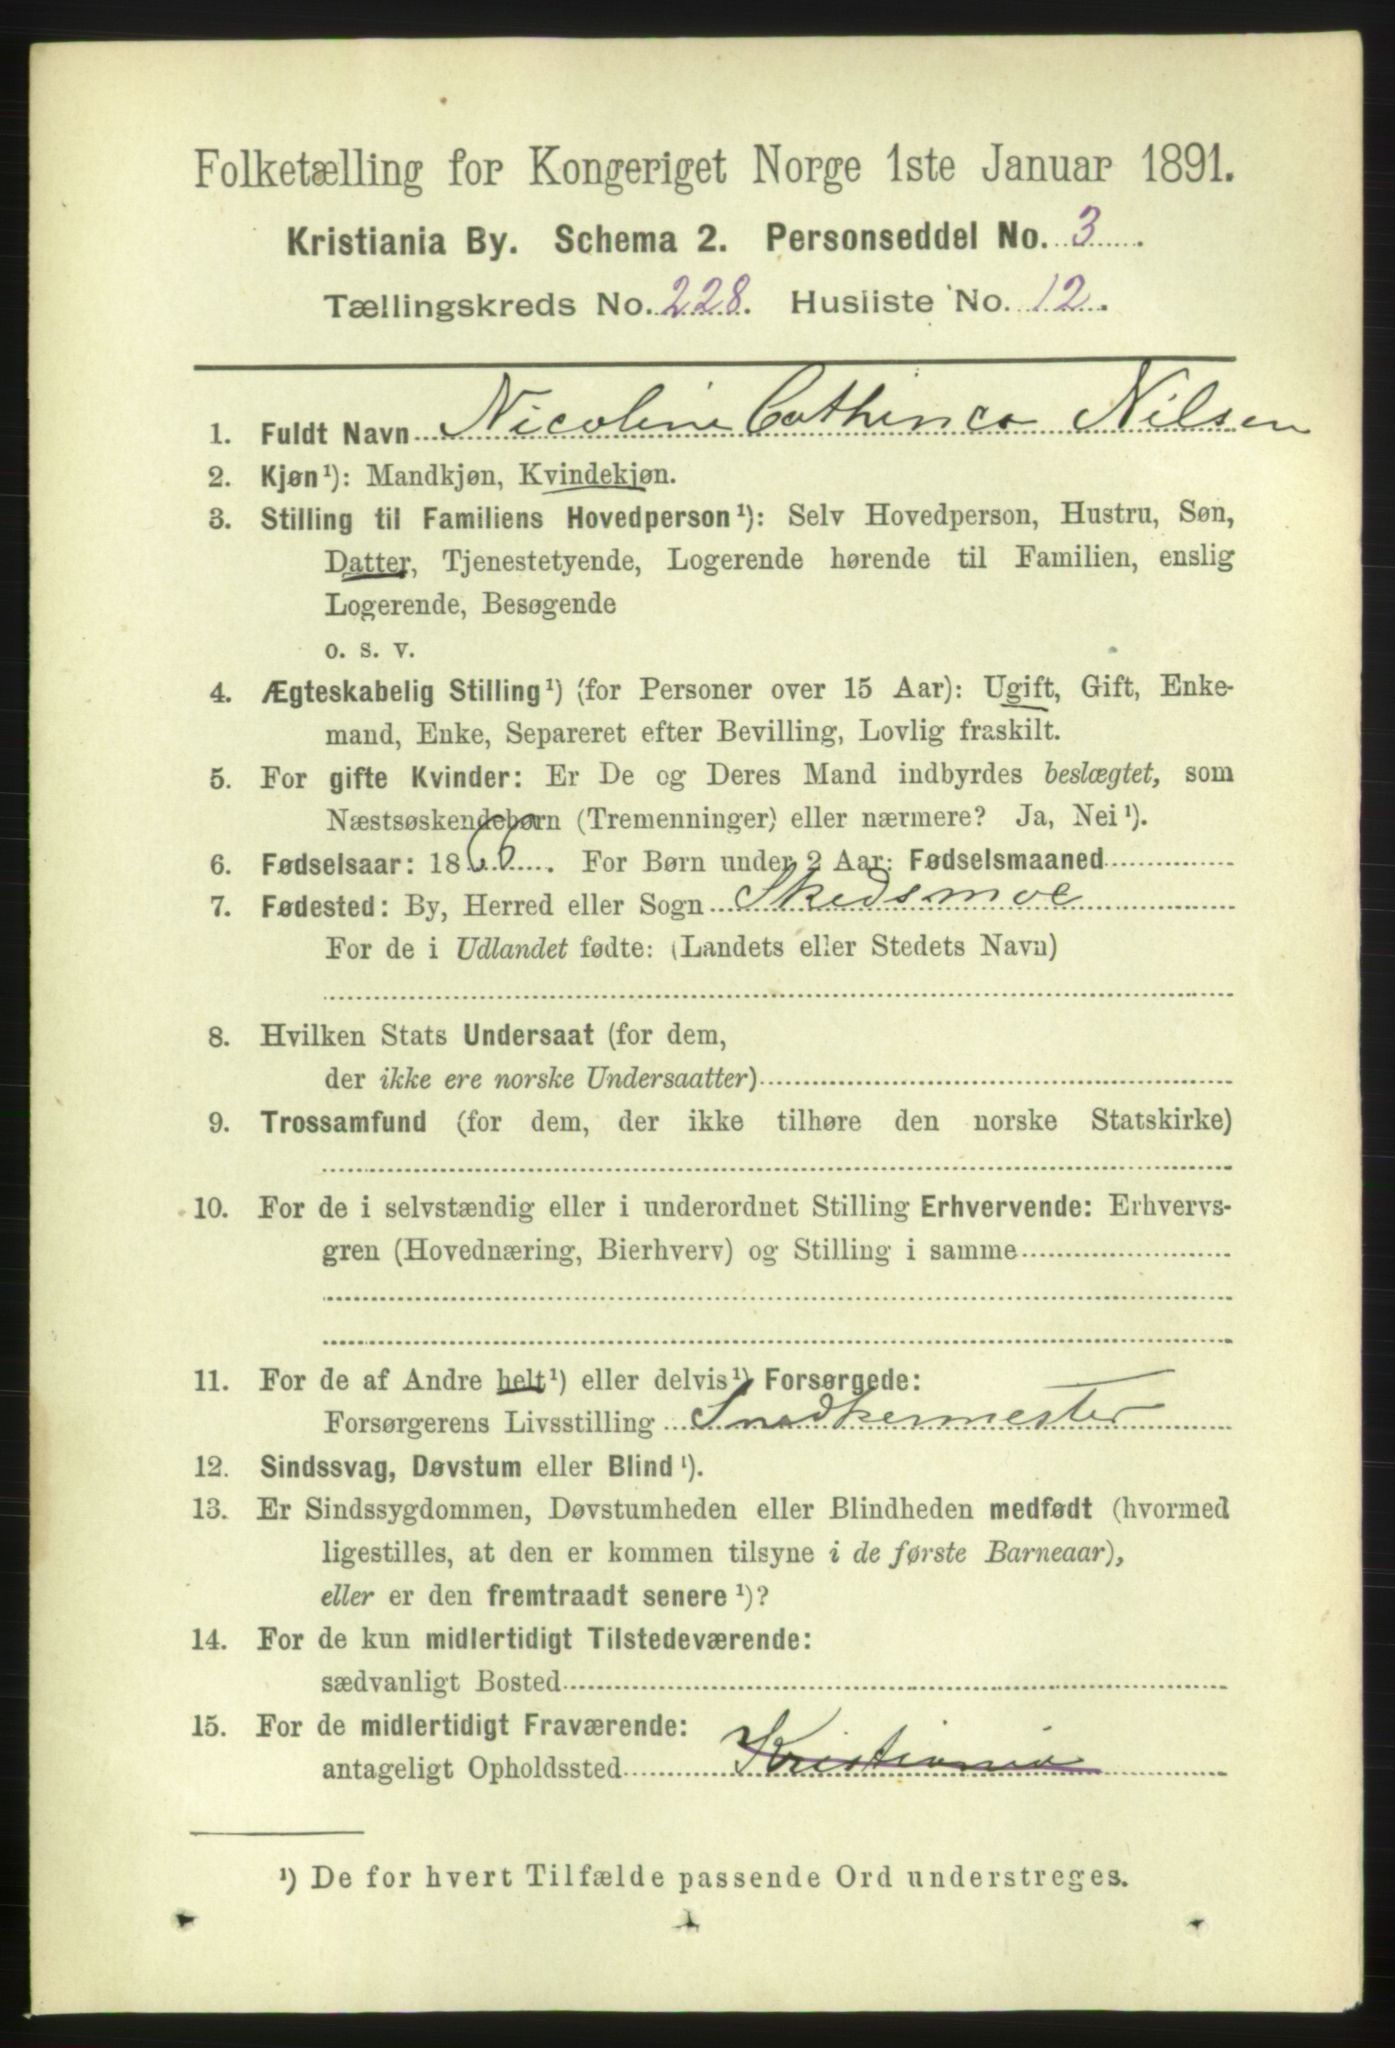 Folketælling for Kongeriget Norge 1ste Januar 1891.
Kristiania By. Schema 2. Personseddel No. 3
Tællingskreds No. 228. Husliste No. 12.
1. Fuldt Navn Nicoline Cathinca Nilsen
2. Kjøn¹): Mandkjøn, Kvindekjøn.
3. Stilling til Familiens Hovedperson¹): Selv Hovedperson, Hustru, Søn,
Datter, Tjenestetyende, Logerende hørende til Familien, enslig
Logerende, Besøgende
o. s. v.
4. Ægteskabelig Stilling¹) (for Personer over 15 Aar): Ugift, Gift, Enke-
mand, Enke, Separeret efter Bevilling, Lovlig fraskilt.
5. For gifte Kvinder: Er De og Deres Mand indbyrdes beslægtet, som
Næstsøskendebørn (Tremenninger) eller nærmere? Ja, Nei¹).
6. Fødselsaar: 1866. For Børn under 2 Aar: Fødselsmaaned
7. Fødested: By, Herred eller Sogn Skedsmoe
For de i Udlandet fødte: (Landets eller Stedets Navn)
8. Hvilken Stats Undersaat (for dem,
der ikke ere norske Undersaatter)
9. Trossamfund (for dem, der ikke tilhøre den norske Statskirke)
10. For de i selvstændig eller i underordnet Stilling Erhvervende: Erhvervs-
gren (Hovednæring, Bierhverv) og Stilling i samme
11. For de af Andre helt¹) eller delvis¹) Forsørgede:
Forsørgerens Livsstilling Snedkermester
12. Sindssvag, Døvstum eller Blind¹).
13. Er Sindssygdommen, Døvstumheden eller Blindheden medfødt (hvormed
ligestilles, at den er kommen tilsyne i de første Barneaar),
eller er den fremtraadt senere¹)?
14. For de kun midlertidigt Tilstedeværende:
sædvanligt Bosted
15. For de midlertidigt Fraværende:
antageligt Opholdssted Kristiania
¹) De for hvert Tilfælde passende Ord understreges.